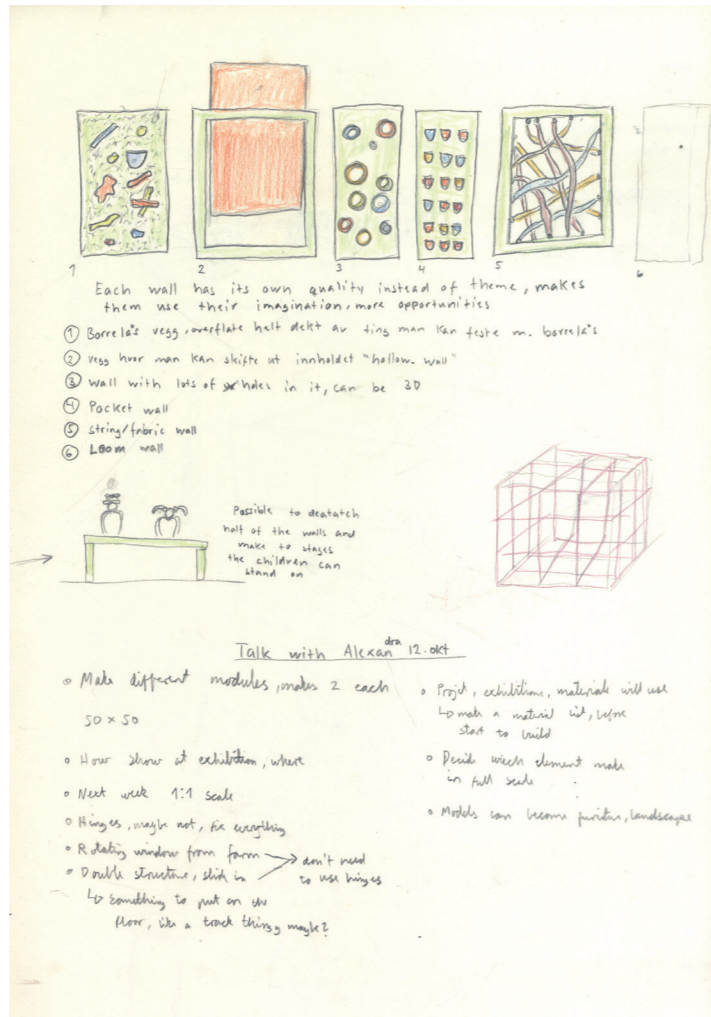 1
2
3
4
5
6
Each wall has its own quality instead of theme, makes
them use their imagination, more opportunities
① Borrelås vegg, overflate helt dekt av ting man kan feste m. borrelås
② vegg hvor man kan skifte ut innholdet "hollow wall"
③ Wall with lots of holes in it, can be 3D
④ Pocket wall
⑤ String/fabric wall
⑥ Loom wall
Possible to deatatch
half of the walls and
make to stages
the children can
stand on
Talk with Alexandra 12.okt
Make different modules, makes 2 each
50 x 50
How show at exhibition, where
Next week 1:1 scale
Hinges, maybe not, fix everything
Rotating window from farm
Double structure, slide in
don't need
to use hinges
↳ Something to put on the
floor, like a track thingy maybe?
Projet, exhibitions, materials will use
↳ make a material list, before
start to build
Decide wiech element make
in full scale
Models can become furnitur, landscape